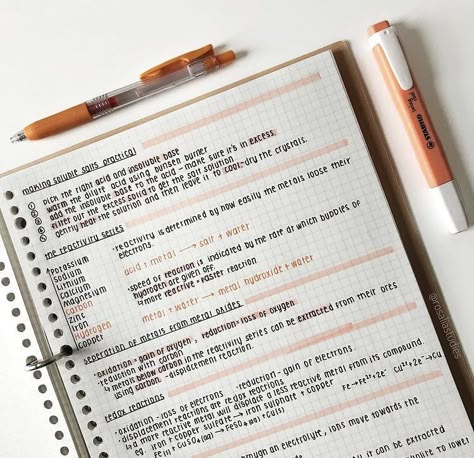 making soluble salts practical
① pick the right acid and insoluble base
② warm the dilute acid using bunsen burner
③ add the insoluble base to the acid - make sure it's in excess.
④ filter out the excess solid to get the salt solution
⑤ gently heat the solution and then leave it to cool - dry the crystals.
the reactivity series
potassium
sodium
lithium
calcium
magnesium
carbon
zinc
iron
hydrogen
copper
·reactivity is determined by how easily the metals loose their
electrons.
acid + metal → salt + water
·speed of reaction is indicated by the rate at which bubbles of
hydrogen are given off.
↳ more reactive = faster reaction
metal + water → metal hydroxide + water
seperation of metals from metal oxides
·oxidation = gain of oxygen , reduction = loss of oxygen
·reduction with carbon
↳ metals below carbon in the reactivity series can be extracted from their ores
using carbon - displacement reaction.
redox reactions
·oxidation - loss of electrons · reduction - gain of electrons
·displacement reactions are redox reactions
↳ a more reactive metal will displace a less reactive metal from its compound.
eg. iron + copper sulphate → iron sulphate + copper
Fe(s) + CuSO4(aq) → FeSO4(aq) + Cu(s)
Cu2+ + 2e- → Cu
through an electrolyte, ions move towards the
it can be extracted
STABILO
swing cool
@rosaliastudies